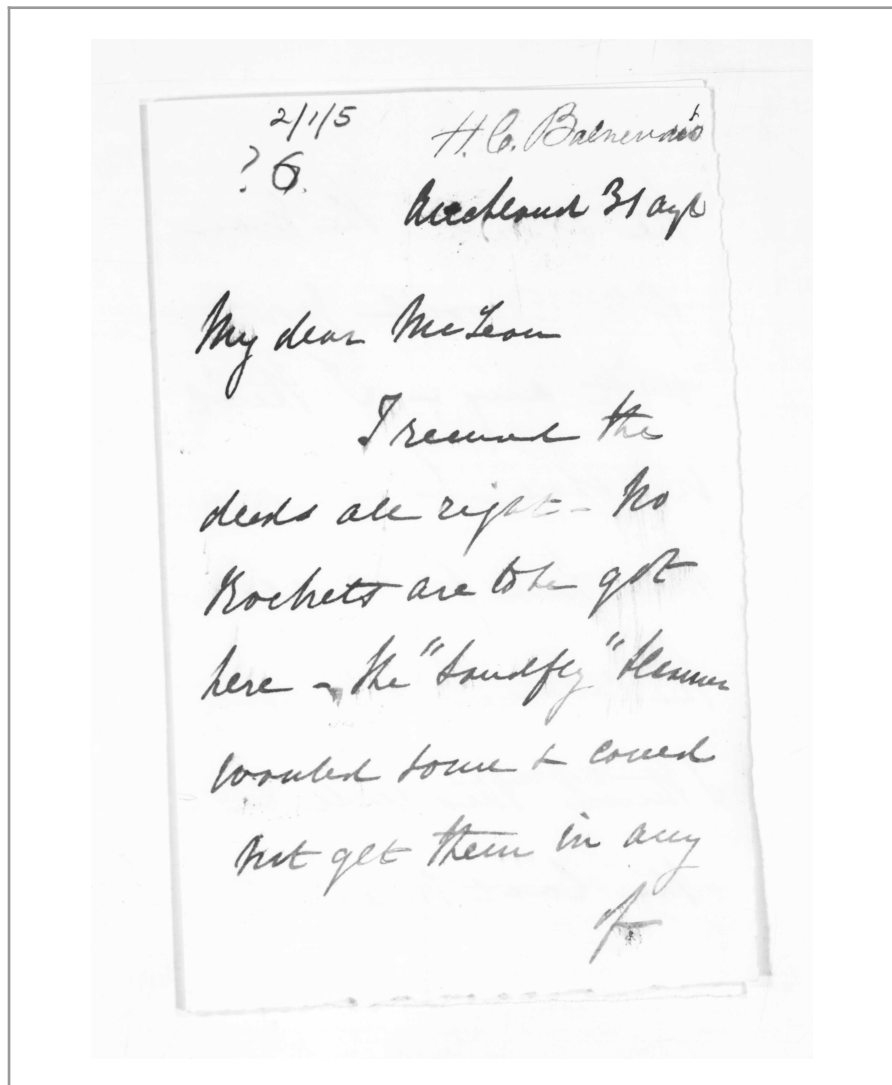 2/1/5
H. C. Balneavis
? 6.
Auckland 31 Augt
My dear McLean
I received the
deeds all right - No
Rockets are to be got
here - the "Sandfly" Steamer
wanted some & could
not get them in any
of